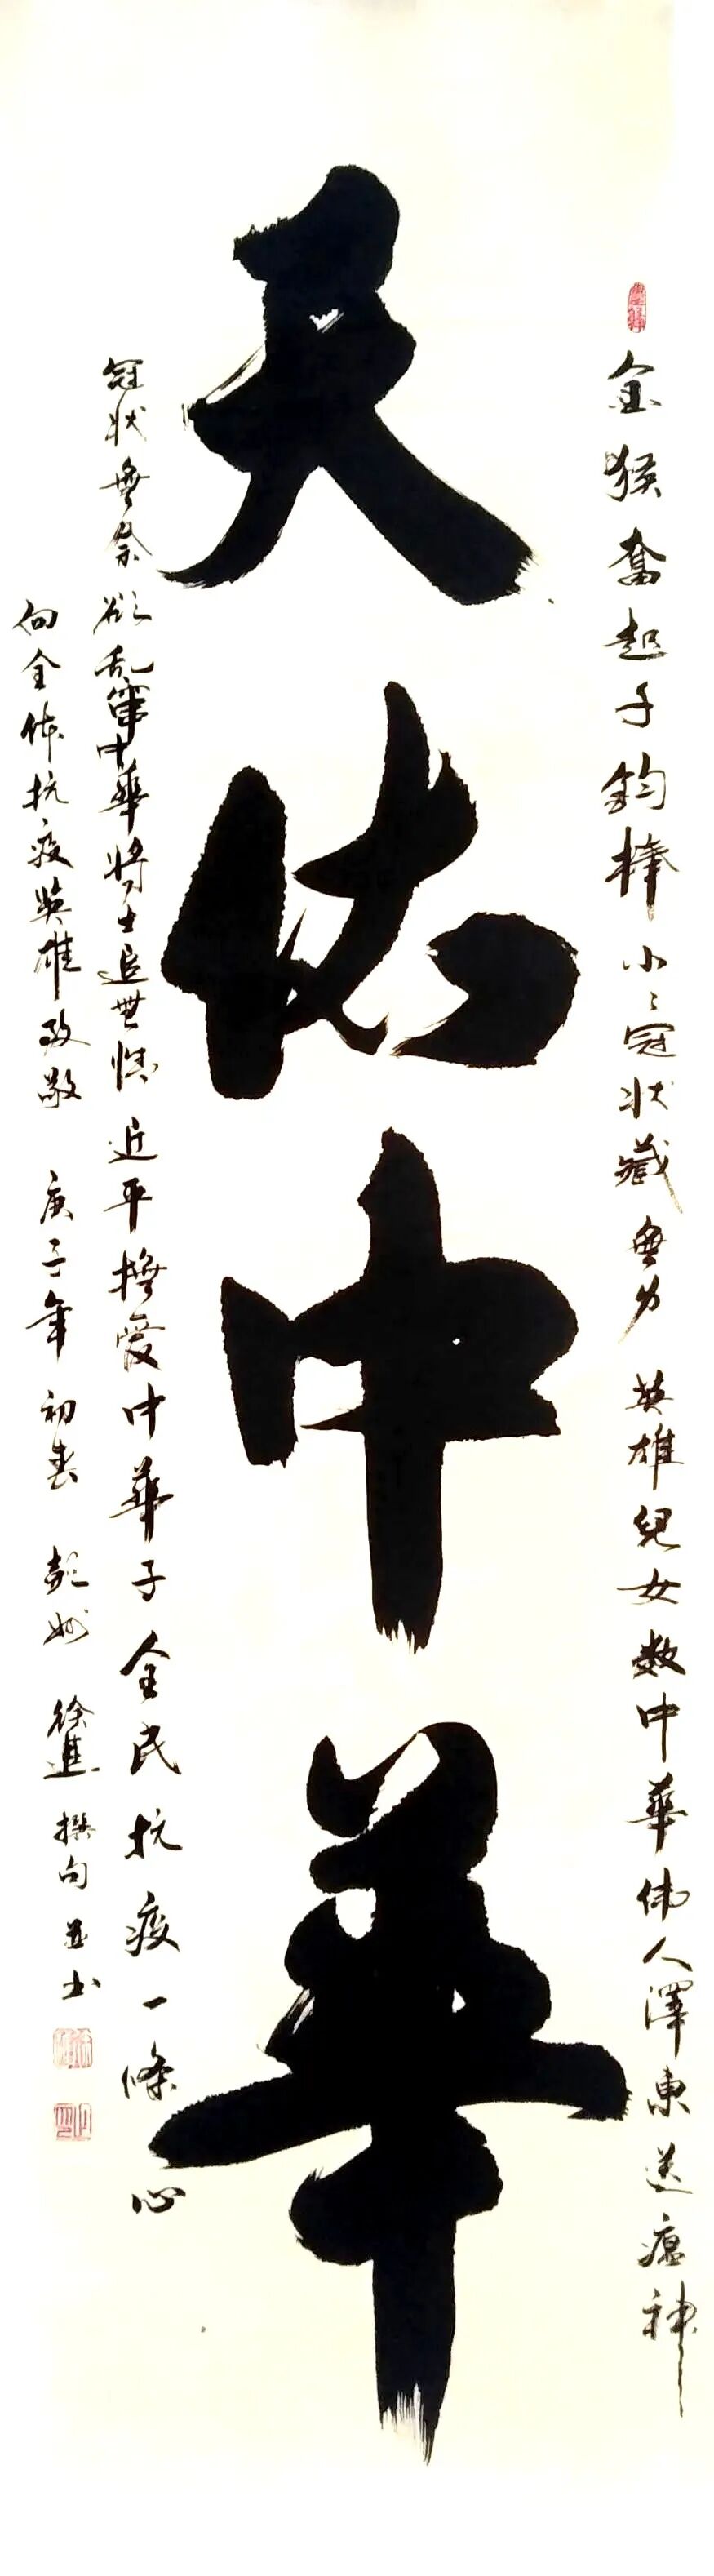 金猴奮起千鈞棒小小冠状藏無力英雄兒女数中華偉人澤東送瘟神
天佑中華
冠状無奈欲乱窜中華將士追無情近平撫愛中華子全民抗疫一條心
向全体抗疫英雄致敬庚子年初春彭州徐進撰句並书